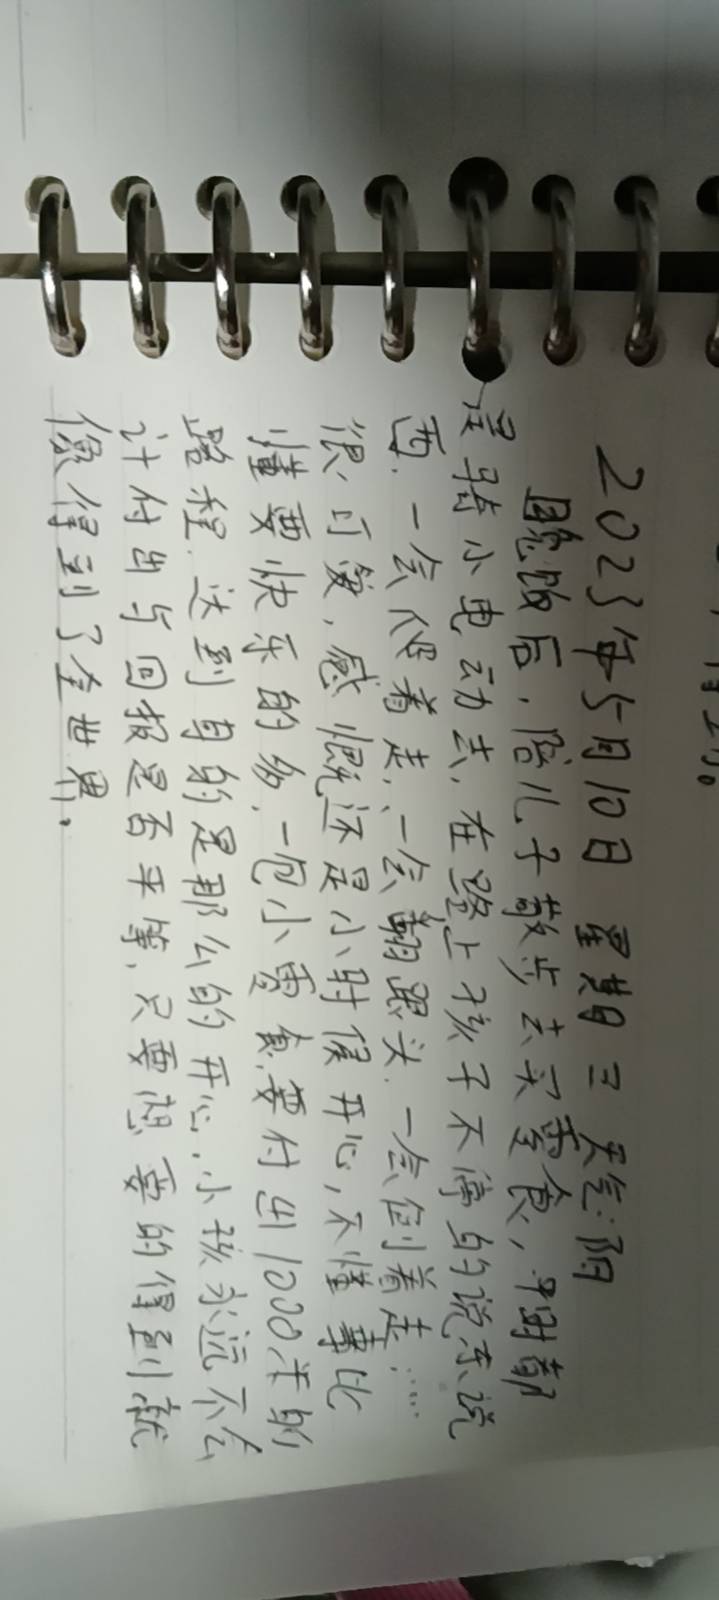 2023年5月10日 星期三 天气:阴
晚饭后,陪儿子散步去买零食,平时都
是骑小电动去,在路上孩子不停的说东说
西,一会爬着走,一会翻跟头,一会倒着走……
很可爱,感慨还是小时候开心,不懂事比
懂要快乐的多,一包小零食,要付出1000米的
路程,达到目的是那么的开心,小孩永远不会
计付出与回报是否平等,只要想要的得到就
像得到了全世界。